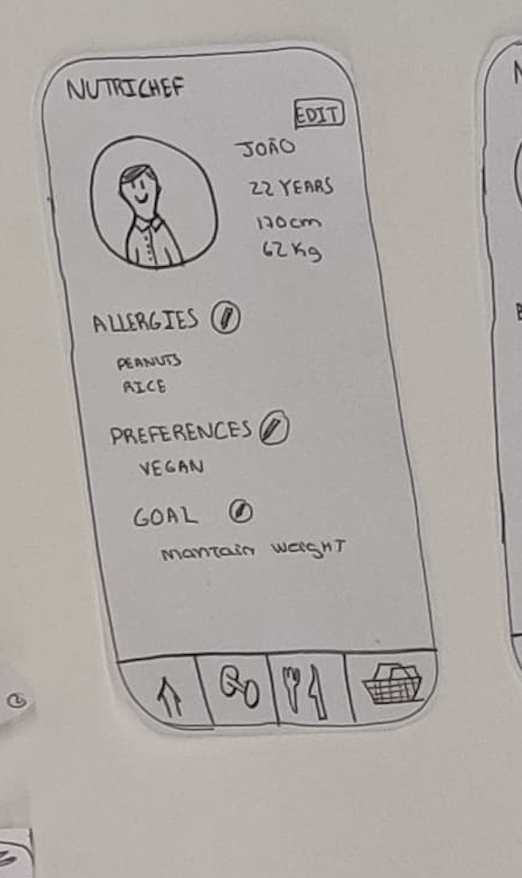 NUTRICHEF
EDIT
JOÃO
22 YEARS
170cm
62 Kg
ALLERGIES
PEANUTS
RICE
PREFERENCES
VEGAN
GOAL
mantain weight